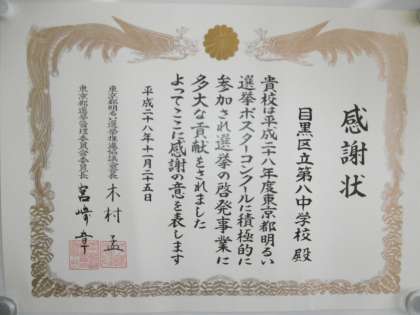 感謝状
目黒区立第八中学校 殿
貴校は平成二十八年度東京都明るい
選挙ポスターコンクールに積極的に
参加され選挙の啓発事業に
多大な貢献をされました
よってここに感謝の意を表します
平成二十八年十一月二十五日
東京都明るい選挙推進協議会会長 木村 孟
東京都選挙管理委員会委員長 宮崎 章